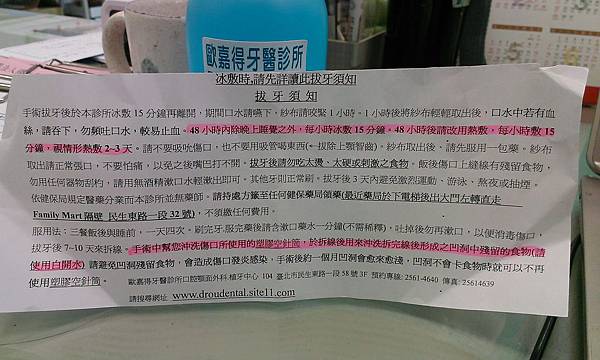 歐嘉得牙醫診所
冰敷時,請先詳讀此拔牙須知
拔 牙 須 知
手術拔牙後於本診所冰敷 15 分鐘再離開，期間口水請嚥下。紗布請咬緊 1 小時。1 小時後將紗布輕輕取出後，口水中若有血
絲，請吞下，勿頻吐口水，較易止血。48 小時內除晚上睡覺之外，每小時冰敷 15 分鐘。48 小時後請改用熱敷，每小時敷 15
分鐘，視情形熱敷 2~3 天。請不要吸吮傷口，也不要用吸管喝東西(。拔除上顎智齒)。紗布取出後，請先服用一包藥。紗布
取出請正常張口，不要怕痛，以免之後嘴巴打不開。拔牙後請勿吃太燙、太硬或刺激之食物。飯後傷口上縫線有殘留食物，
勿用任何器物刮杓，請用無酒精漱口水輕漱出即可。其他牙則正常刷。拔牙後 3 天內避免激烈運動、游泳、熬夜或抽煙。
依健保局規定醫藥分業而本診所並無藥師。請持處方籤至任何健保藥局領藥(最近藥局於下電梯後出大門左轉直走
Family Mart 隔壁 民生東路一段 32 號)，不須繳任何費用。
服用法：三餐飯後與睡前，一天四次。刷完牙.服完藥後請含漱口藥水一分鐘(不需稀釋)，吐掉後勿再漱口，以便消毒傷口，
拔牙後 7~10 天來拆線。手術中幫您沖洗傷口所使用的塑膠空針筒，於拆線後用來沖洗拆完線後形成之凹洞中殘留的食物(請
使用白開水) 請避免凹洞殘留食物，會造成傷口發炎感染，手術後約一個月凹洞會愈來愈淺，凹洞不會卡食物時就可以不再
使用塑膠空針筒。 歐嘉得牙醫診所口腔顎面外科.植牙中心 104 臺北市民生東路一段 58 號 3F 預約專線: 2561-4640 傳真: 25614639
請搜尋網址 www.droudental.site11.com